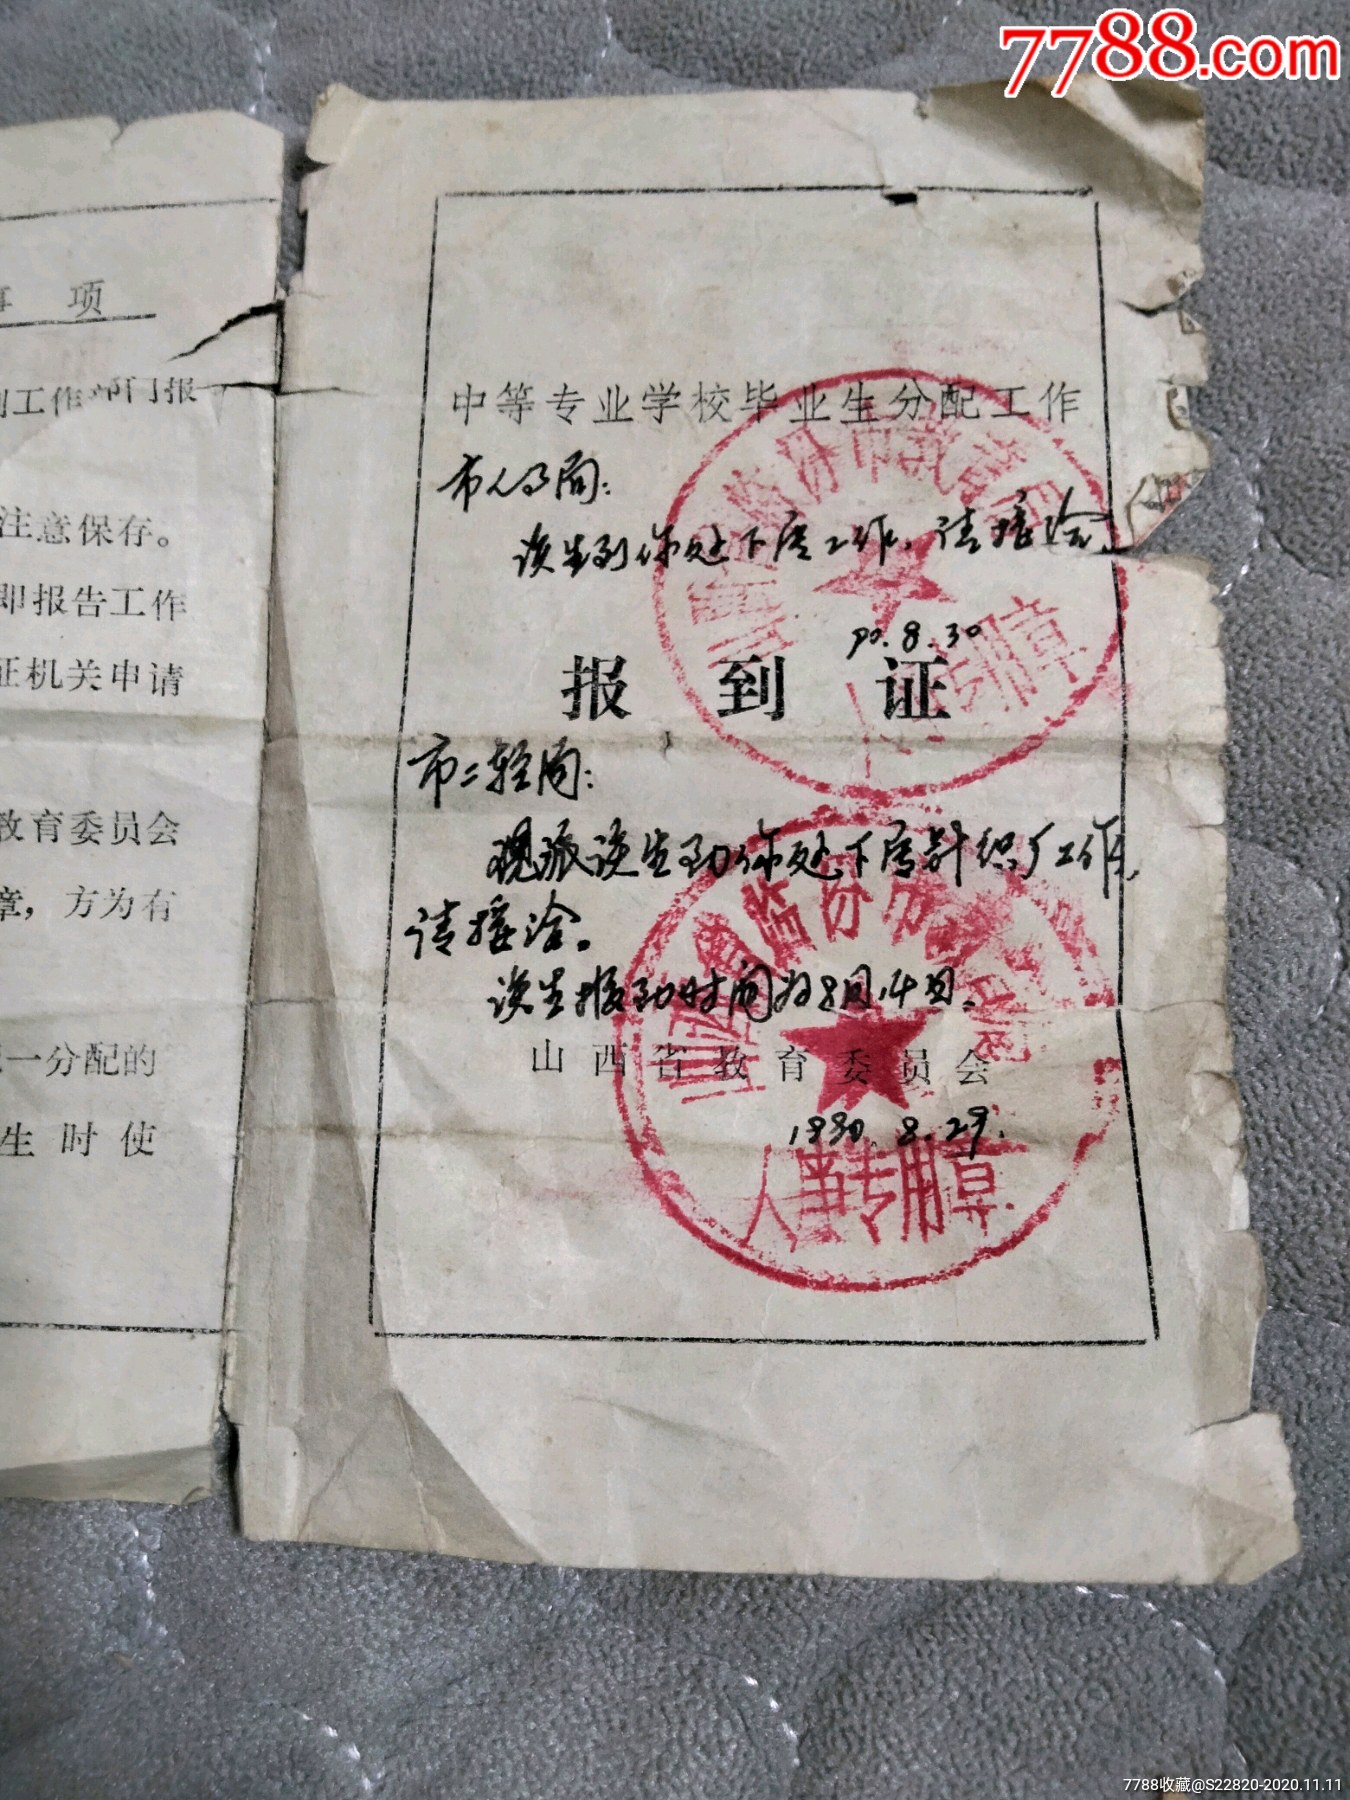 7788.com
事 项
到工作部门报
注意保存。
即报告工作
证机关申请
教育委员会
章，方为有
一分配的
生时使
中等专业学校毕业生分配工作
市人事局：
该生到你处下属工作，请接洽
90.8.30
报到证
市二轻局：
现派该生到你处下属针织厂工作，
请接洽。
该生报到时间为8月14日。
山西省教育委员会
1990.8.29.
人事专用章
7788收藏@S22820-2020.11.11